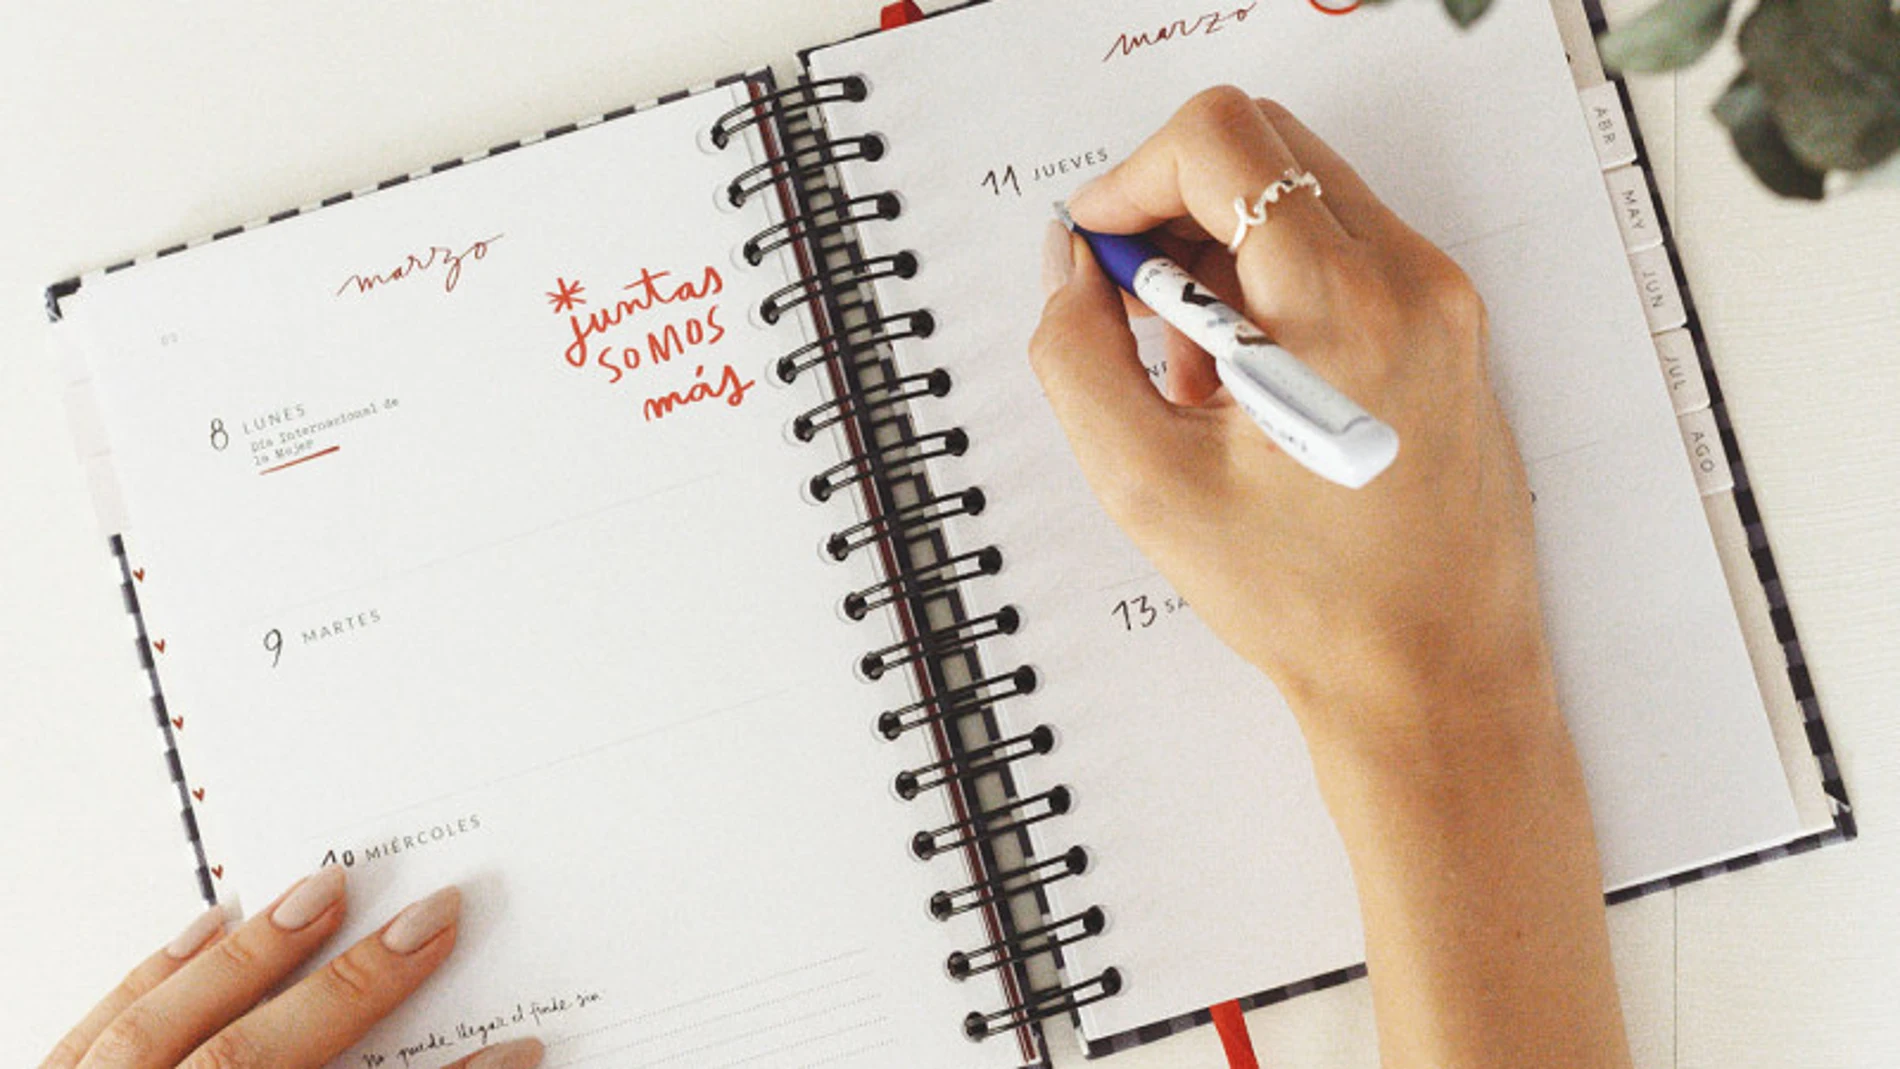 marzo
*juntas
somos
más
8 LUNES
Día Internacional de
la Mujer
9 MARTES
10 MIÉRCOLES
No puede llegar el finde sin
marzo
11 JUEVES
13 SÁ
ABR
MAY
JUN
JUL
AGO